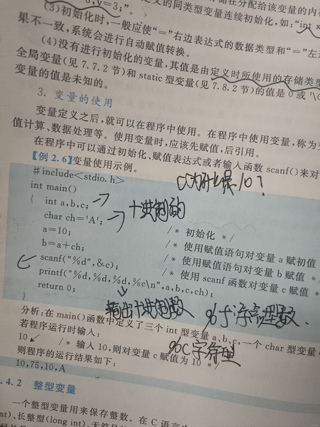 (3)初始化时,一般应使"="右边表达式的数据类型和"="左
果不一致,系统会进行自动赋值转换。
(4)没有进行初始化的变量,其值是由定义时所使用的存储类
全局变量(见 7.7.2 节)和 static 型变量(见 7.8.2 节)的值是 0 或
变量的值是未知的。
3. 变量的使用
变量定义之后,就可以在程序中使用。在程序中使用变量,称为
值计算、数据处理等。使用变量时,应该先赋值,后引用。
在程序中可以通过初始化、赋值表达式或者输入函数 scanf()来对
【例 2.6】变量使用示例。
#include<stdio.h>
int main()
{ int a,b,c;
十进制的
char ch='A'; /* 初始化 */
a=10; /* 使用赋值语句对变量 a 赋初值
b=a+ch; /* 使用赋值语句对变量 b 赋值
scanf("%d",&c); /* 使用 scanf 函数对变量 c 赋
printf("%d,%d,%d,%c\n",a,b,c,ch);
return 0;
}
输出十进制数
%f浮点型数
%c字符型
分析:在 main()函数中定义了三个 int 型变量 a,b,c,一个 char 型变量
若程序运行时输入:
10 /* 输入 10,则对变量 c 赋值为 10
则程序的运行结果如下:
10,75,10,A
.4.2 整型变量
一个整型变量用来保存整数。在 C 语言
nt)、长整型(long int)、无符